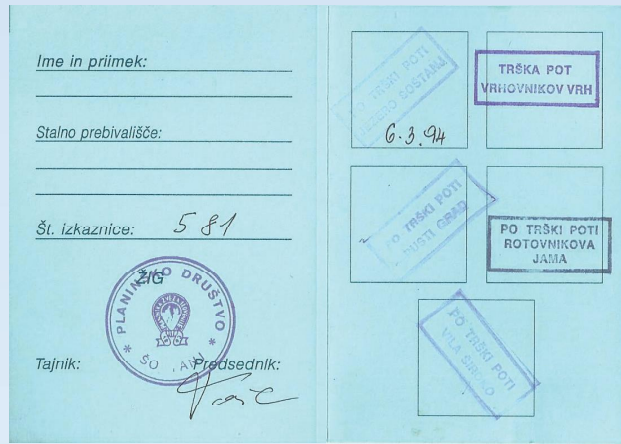 Ime in priimek:
Stalno prebivališče:
Št. izkaznice: 581
ŽIG
PLANINSKO DRUŠTVO
Tajnik: Predsednik:
PO TRŠKI POTI
ŠOŠTANJ
6.3.94
TRŠKA POT
VRHOVNIKOV VRH
PO TRŠKI POTI
PUSTI GRAD
PO TRŠKI POTI
ROTOVNIKOVA
JAMA
PO TRŠKI POTI
VILA ŠIROKO